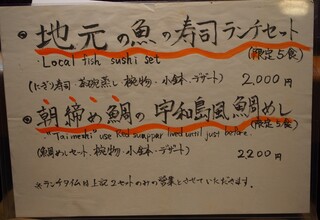 地元の魚の寿司ランチセット
・Local fish sushi set (限定5食)
(にぎり寿司・茶碗蒸し・椀物・小鉢・デザート) 2,000円
朝締め鯛の宇和島風鯛めし
"Taimeshi" use Red snappar lived until just before (限定5食)
(鯛めしセット・椀物・小鉢・デザート) 2200円
※ランチタイムは上記2セットのみの営業とさせていただきます。